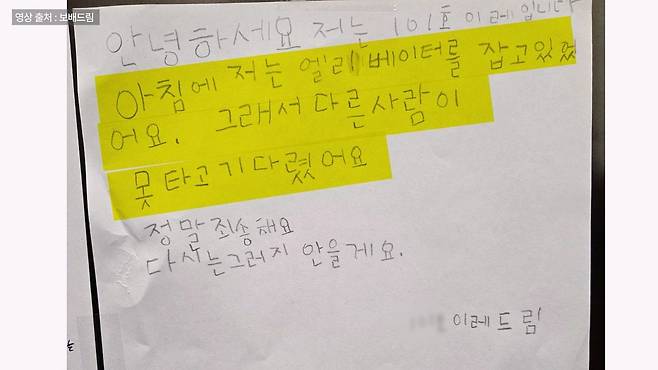 영상 출처 : 보배드림
안녕하세요 저는 101호 이레입니다
아침에 저는 엘리베이터를 잡고있었
어요. 그래서 다른사람이
못 타고 기다렸어요
정말 죄송해요
다시는그러지 안을게요.
이레드림